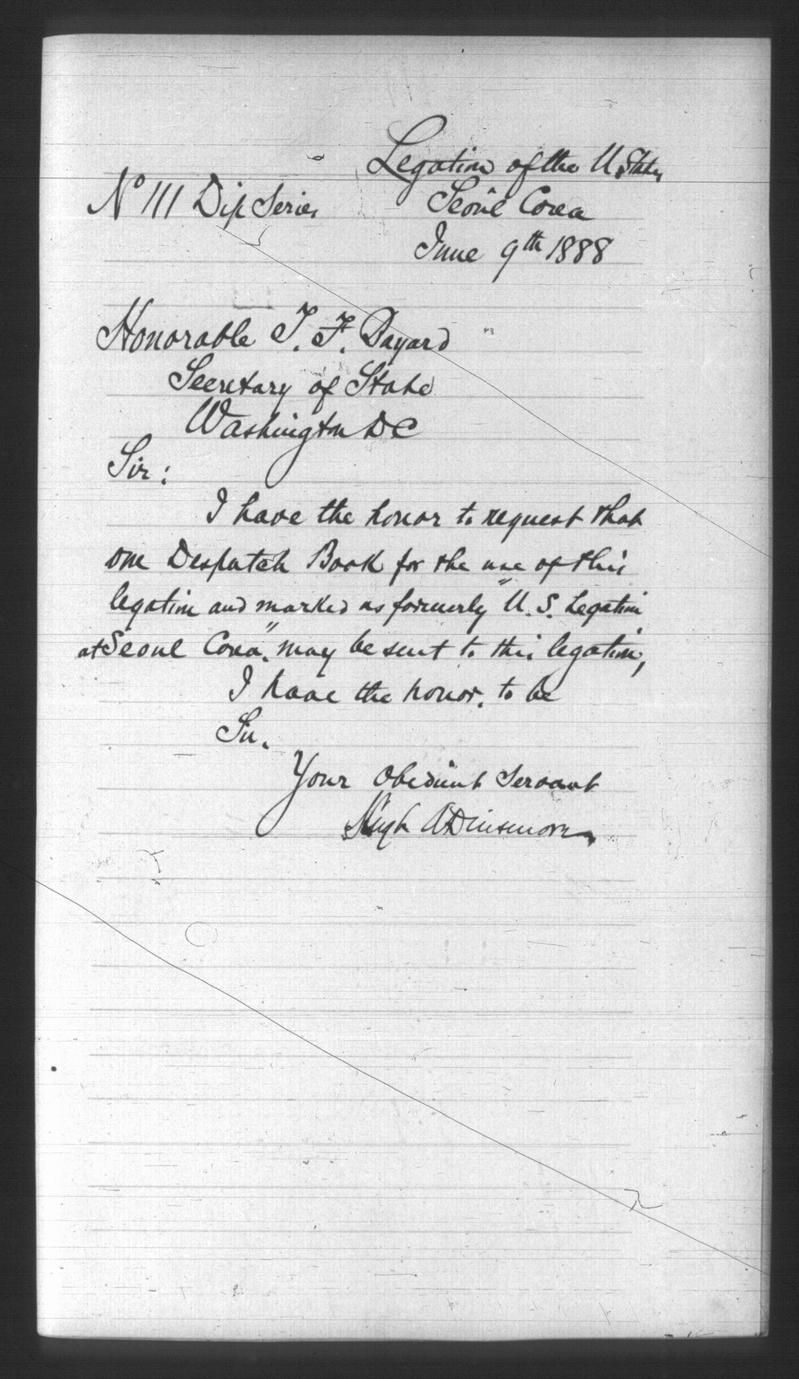 Legation of the U. States
Nº 111 Dip Series
Seoul Corea
June 9th 1888
Honorable T. F. Bayard
Secretary of State
Washington DC
Sir:
I have the honor to request that
one Despatch Book for the use of this
legation and marked as formerly "U. S. Legation
at Seoul Corea". may be sent to this legation,
I have the honor, to be
Sir.
Your Obedient Servant
Hugh A Dinsmore